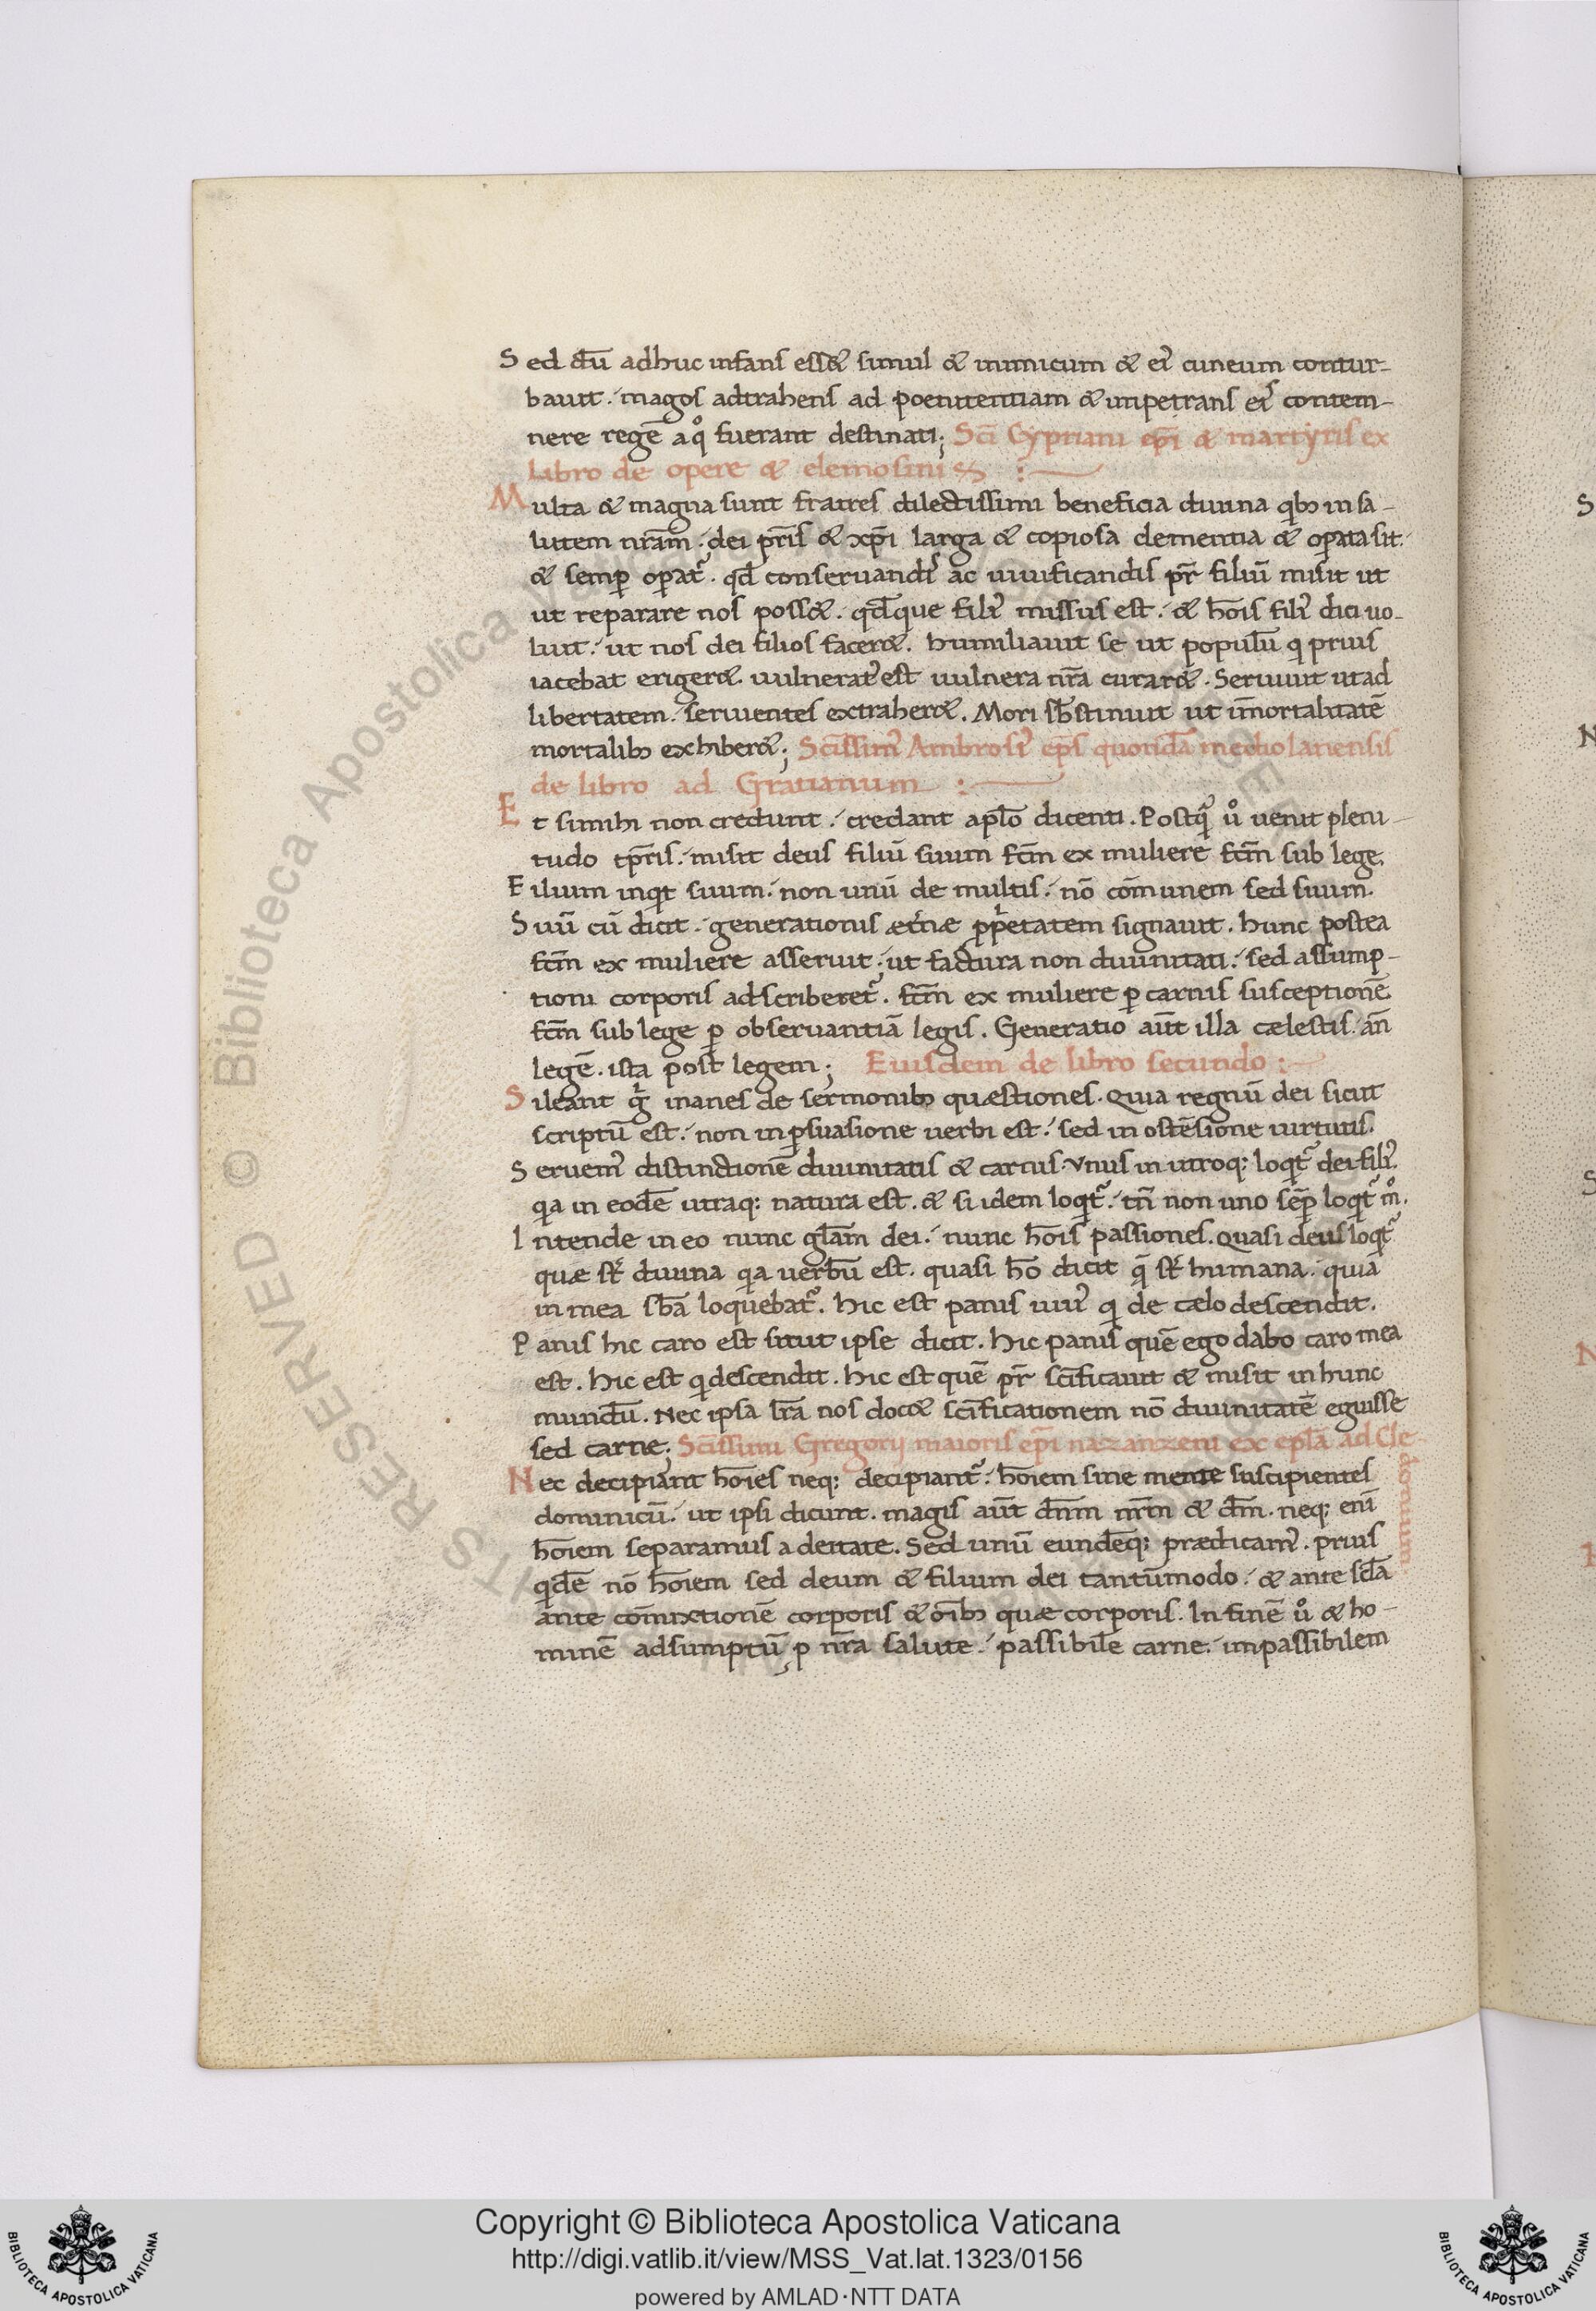 Sed dū adhuc infans esset simul & inimicum & ei' cuneum contur-
bauit. magos adtrahens ad poenitentiam & impetrans eis contem-
nere regē a q̊ fuerant destinati; Sc̄i Cypriani ep̄i & martyris ex
libro de opere & elemosinis :—
Multa & magna sunt fratres dilectissimi beneficia diuina qib; in sa-
lutem nr̄am. dei pr̄is & xp̄i larga & copiosa clementia & oꝑata sit.
& semꝑ oꝑat'. qd̄ conseruandis ac uiuificandis pr̄ filiū misit ut
ut reparare nos posset. qd̄que fili' missus est. & hōis fili' dici uo-
luit. ut nos dei filios faceret. humiliauit se ut populū q prius
iacebat erigeret. uulnerat' est uulnera nr̄a curaret. Seruiuit ut ad
libertatem. seruientes extraheret. Mori sb̄stinuit ut īmortalitatē
mortalib; exhiberet; Sc̄issimi Ambrosi' ep̄s quondā mediolanensis
de libro ad Gratianum :—
Et si mihi non credunt. credant apl̄o dicenti. Postq̄ ů uenit pleni-
tudo tp̄ris. misit deus filiū suum fc̄m ex muliere fc̄m sub lege.
Filium inqit suum. non unū de multis. nō cōmunem sed suum.
Suū cū dicit. generationis æt'næ ꝓp'etatem signauit. hunc postea
fc̄m ex muliere asseruit. ut factura non diuinitati. sed assump-
tioni corporis adscriberet'. fc̄m ex muliere ꝑ carnis susceptionē
fc̄m sub lege ꝑ obseruantiā legis. Generatio aūt illa cælestis. an̄
legē. ista post legem; Eiusdem de libro secundo :—
Sileant g' inanes de sermonib; quæstiones. Quia regnū dei sicut
scriptū est. non in ꝑsuasione uerbi est. sed in ostēsione uirtutis.
Seruem' distinctionē diuinitatis & carnis. Vnus in utroq; loqit' dei fili'.
qia in eodē utraq; natura est. & si idem loqit'. tn̄ non uno sēꝑ loqit' m̊.
Intende in eo nunc gl̄am dei. nunc hōis passiones. Quasi deus loqit'
quæ st' diuina qia uerbū est. quasi hō dicit q̄ st' humana. quia
in mea sb̄a loquebat'. Hic est panis uiu' qi de cælo descendit.
Panis hic caro est sicut ipse dicit. Hic panis quē ego dabo caro mea
est. Hic est qi descendit. Hic est quē pr̄ sc̄ificauit & misit in hunc
mundū. Nec ipsa lr̄a nos docet sc̄ificationem nō diuinitatē eguisse
sed carnē; Sc̄issimi Gregorij maioris ep̄i nazanzeni ex epl̄a ad Cle
donium
Nec decipiant hōies neq; decipiant'. hōiem sine mente suscipientes
dominicū. ut ipsi dicunt. magis aūt dn̄m nr̄m & dm̄. neq; eni
hōiem separamus a deitate. Sed unū eundēq; prædicam'. prius
qidē nō hōiem sed deum & filium dei tantūmodo. & ante sc̄la
ante cōmixtionē corporis & oīb; quæ corporis. In finē ů & ho-
minē adsumptū ꝓ nr̄a salute. passibilē carne. impassibilem
Copyright © Biblioteca Apostolica Vaticana
http://digi.vatlib.it/view/MSS_Vat.lat.1323/0156
powered by AMLAD·NTT DATA